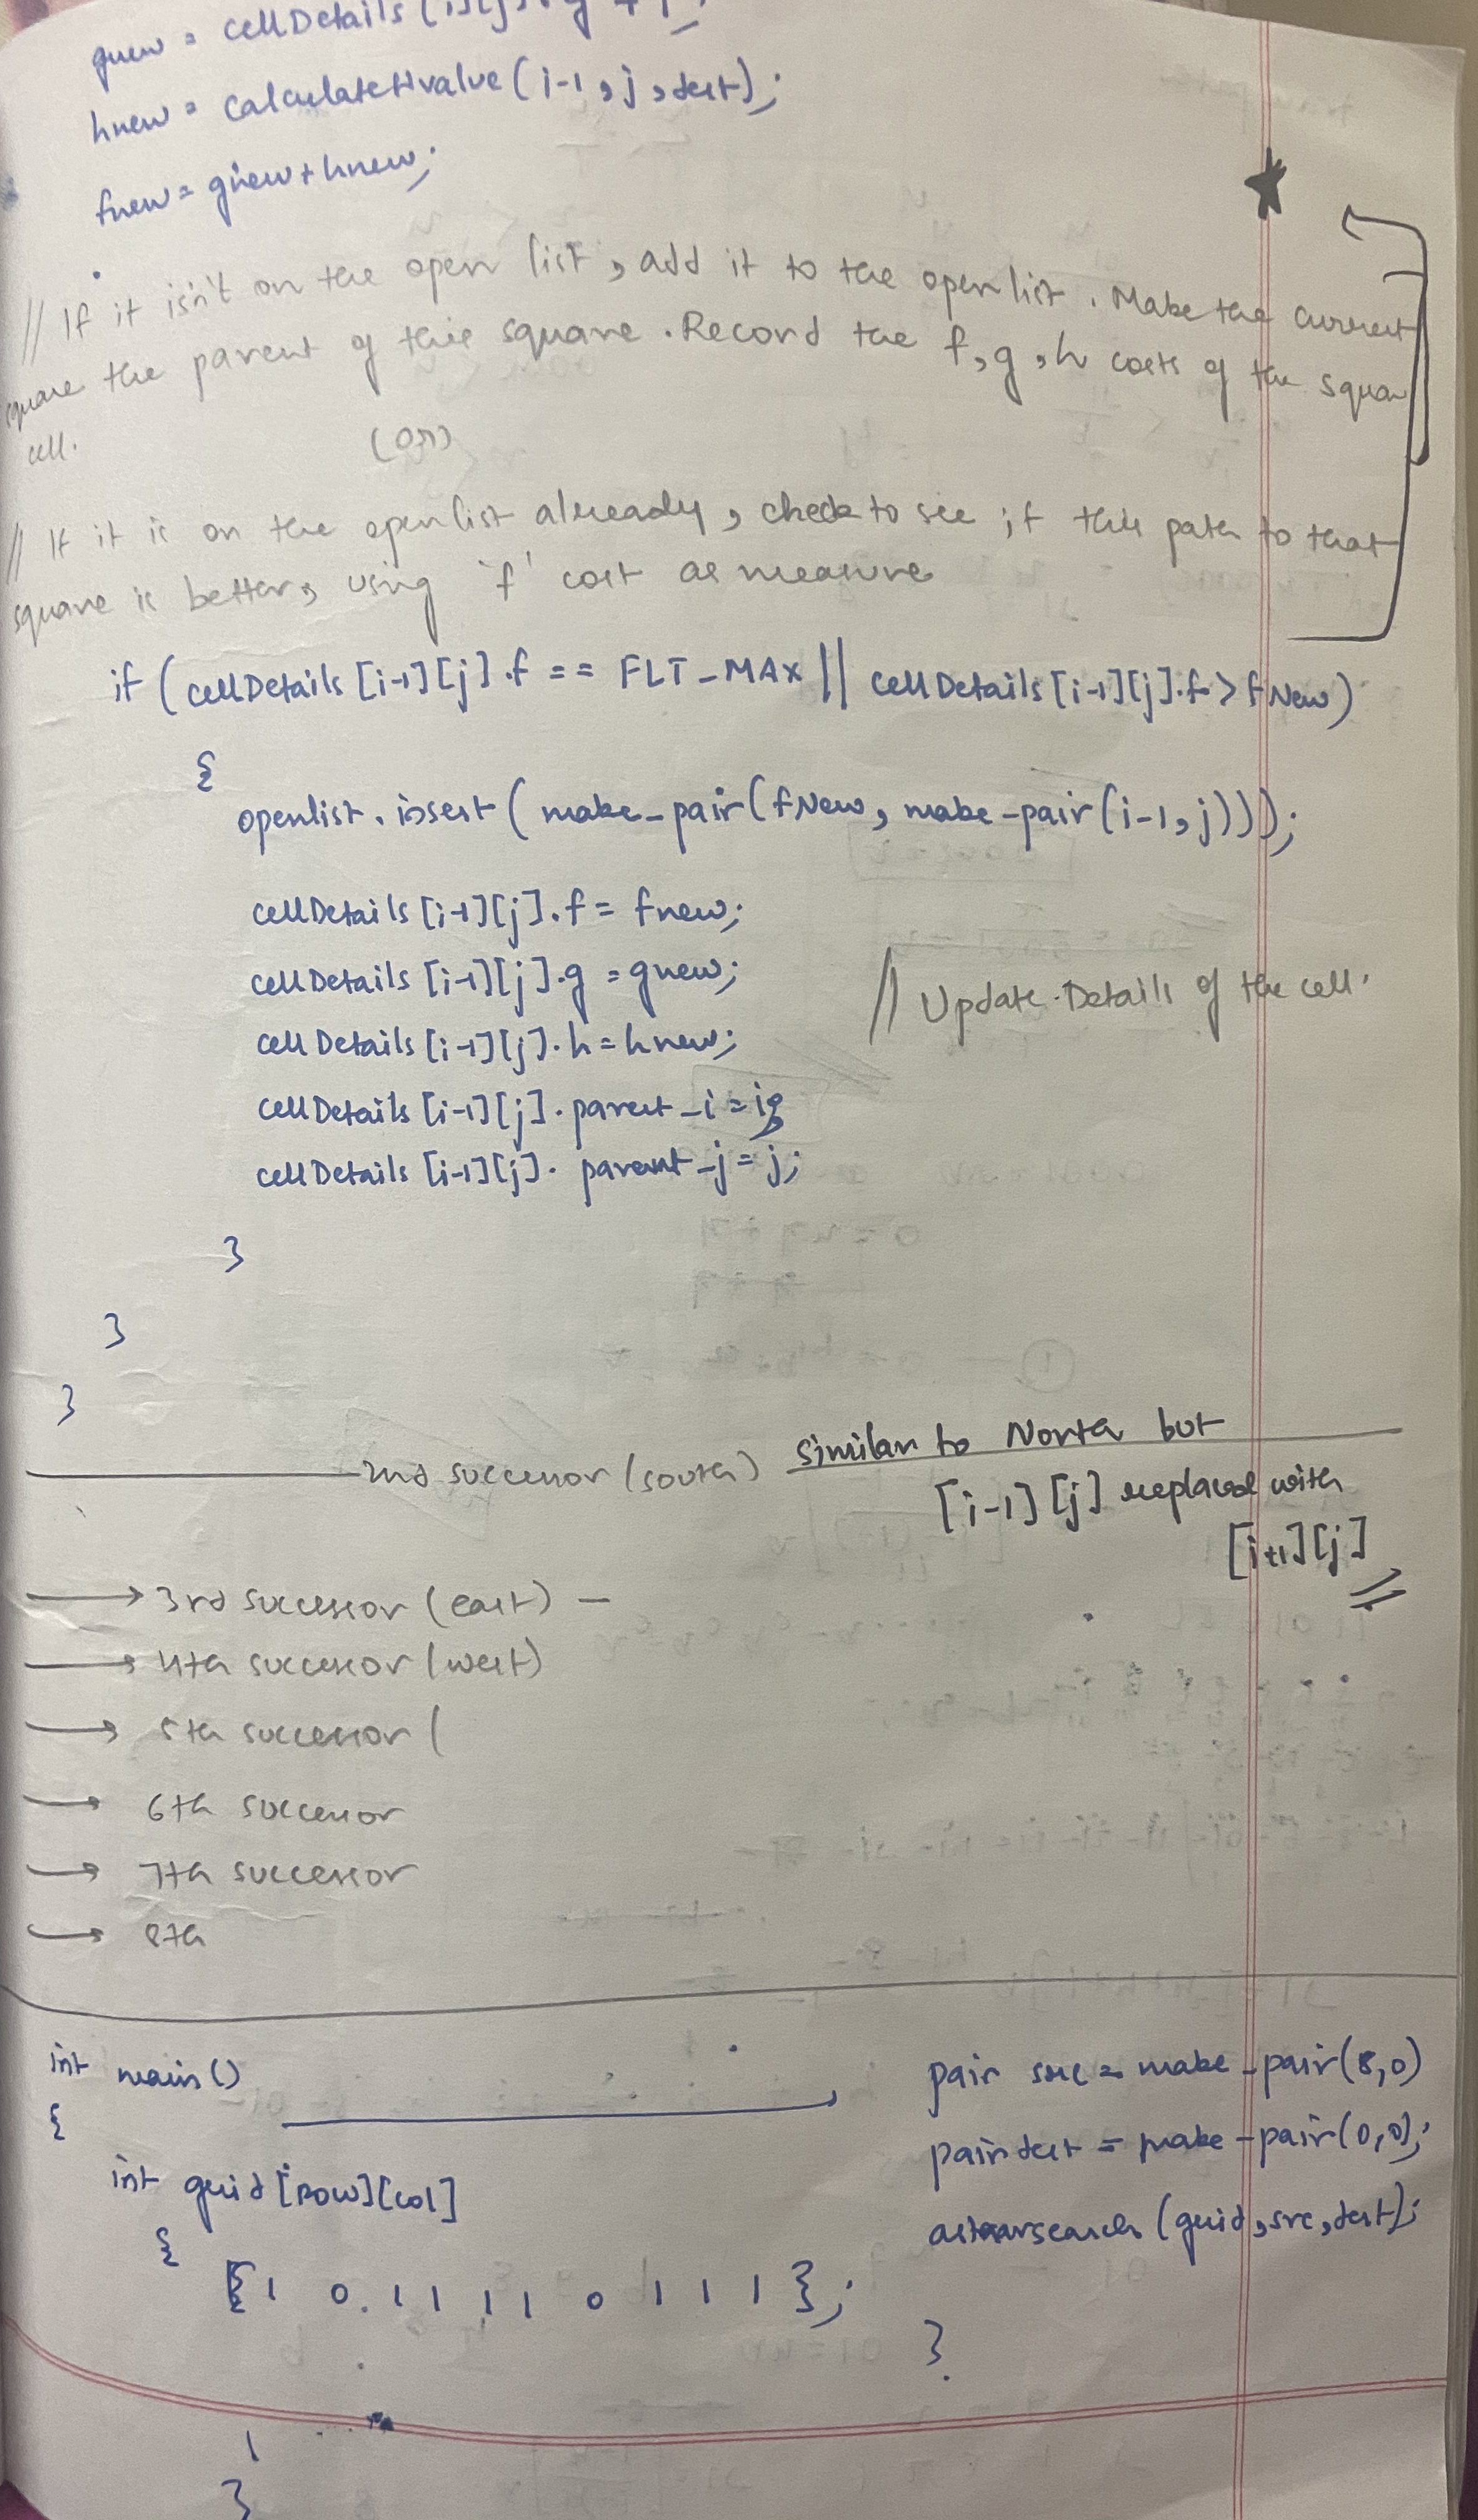 gnew = cellDetails[i][j].g + 1;
hnew = calculateHvalue(i-1, j, dest);
fnew = gnew + hnew;
// If it isn't on the open list, add it to the openlist. Make the current
square the parent of this square. Record the f, g, h costs of the square
cell.
(or)
// If it is on the openlist already, check to see if this path to that
square is better, using 'f' cost as measure
if (cellDetails[i-1][j].f == FLT_MAX || cellDetails[i-1][j].f > fNew)
{
openlist.insert(make_pair(fNew, make_pair(i-1, j)));
cellDetails[i-1][j].f = fnew;
cellDetails[i-1][j].g = gnew;
// Update Details of the cell.
cellDetails[i-1][j].h = hnew;
cellDetails[i-1][j].parent_i = i;
cellDetails[i-1][j].parent_j = j;
}
}
}
2nd successor (south) similar to North but
[i-1][j] replaced with
[i+1][j]
→ 3rd successor (east) -
→ 4th successor (west)
→ 5th successor (
→ 6th successor
→ 7th successor
→ 8th
int main()
{
int grid[row][col]
{
{1 0 1 1 1 1 0 1 1 1};
1
}
pair src = make_pair(8,0)
pair dest = make_pair(0,0);
astarsearch(grid, src, dest);
}